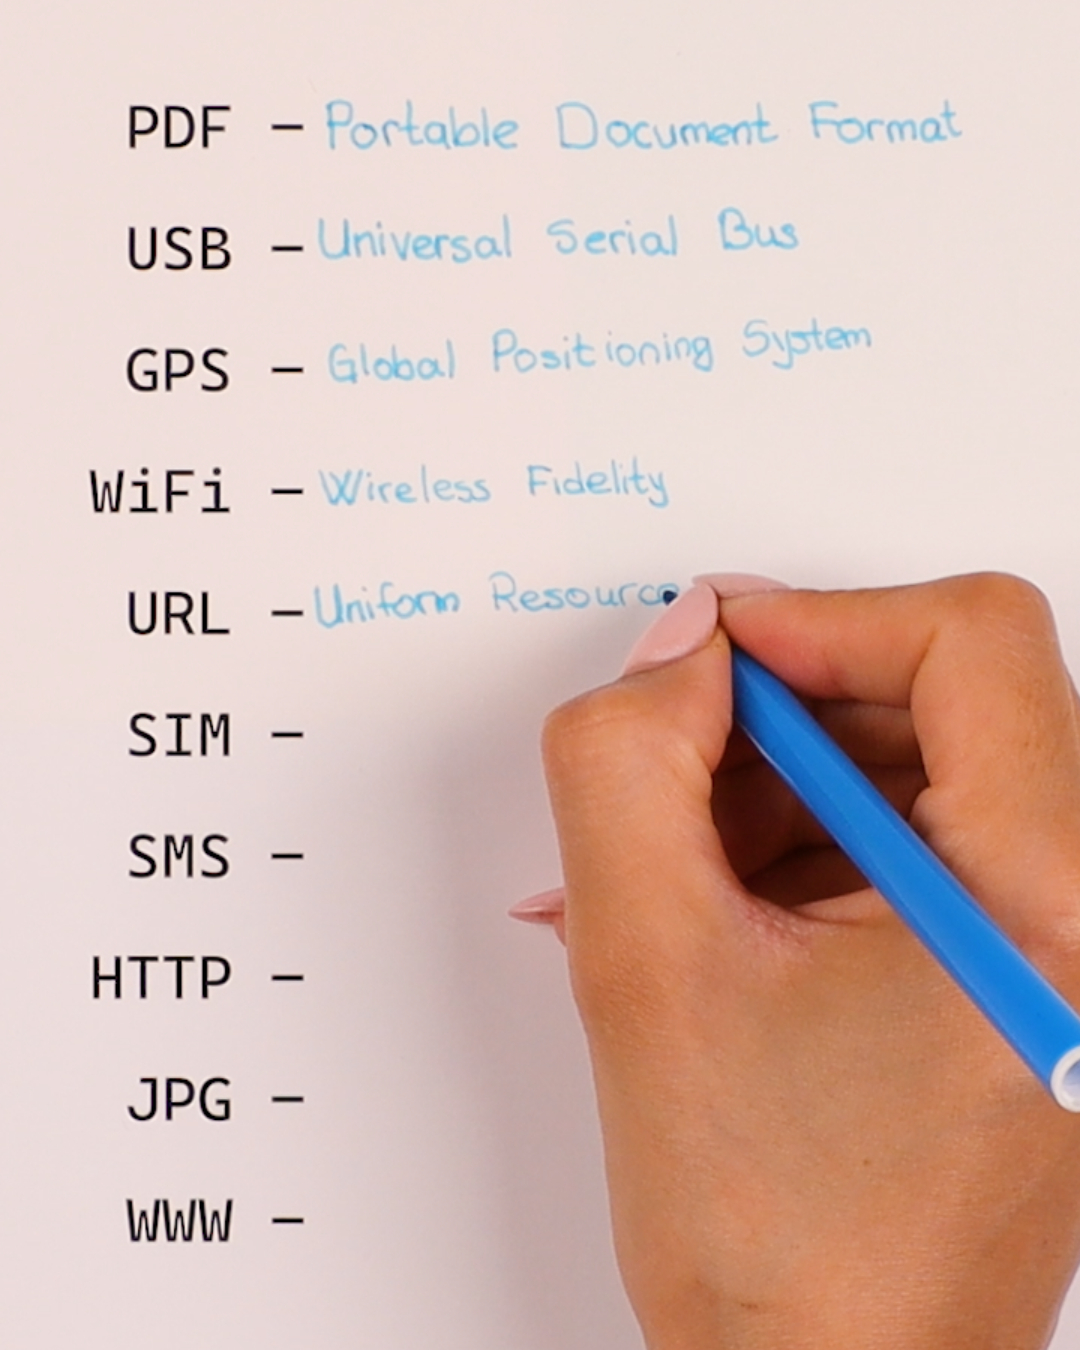 PDF – Portable Document Format
USB – Universal Serial Bus
GPS – Global Positioning System
WiFi – Wireless Fidelity
URL – Uniform Resource
SIM –
SMS –
HTTP –
JPG –
WWW –